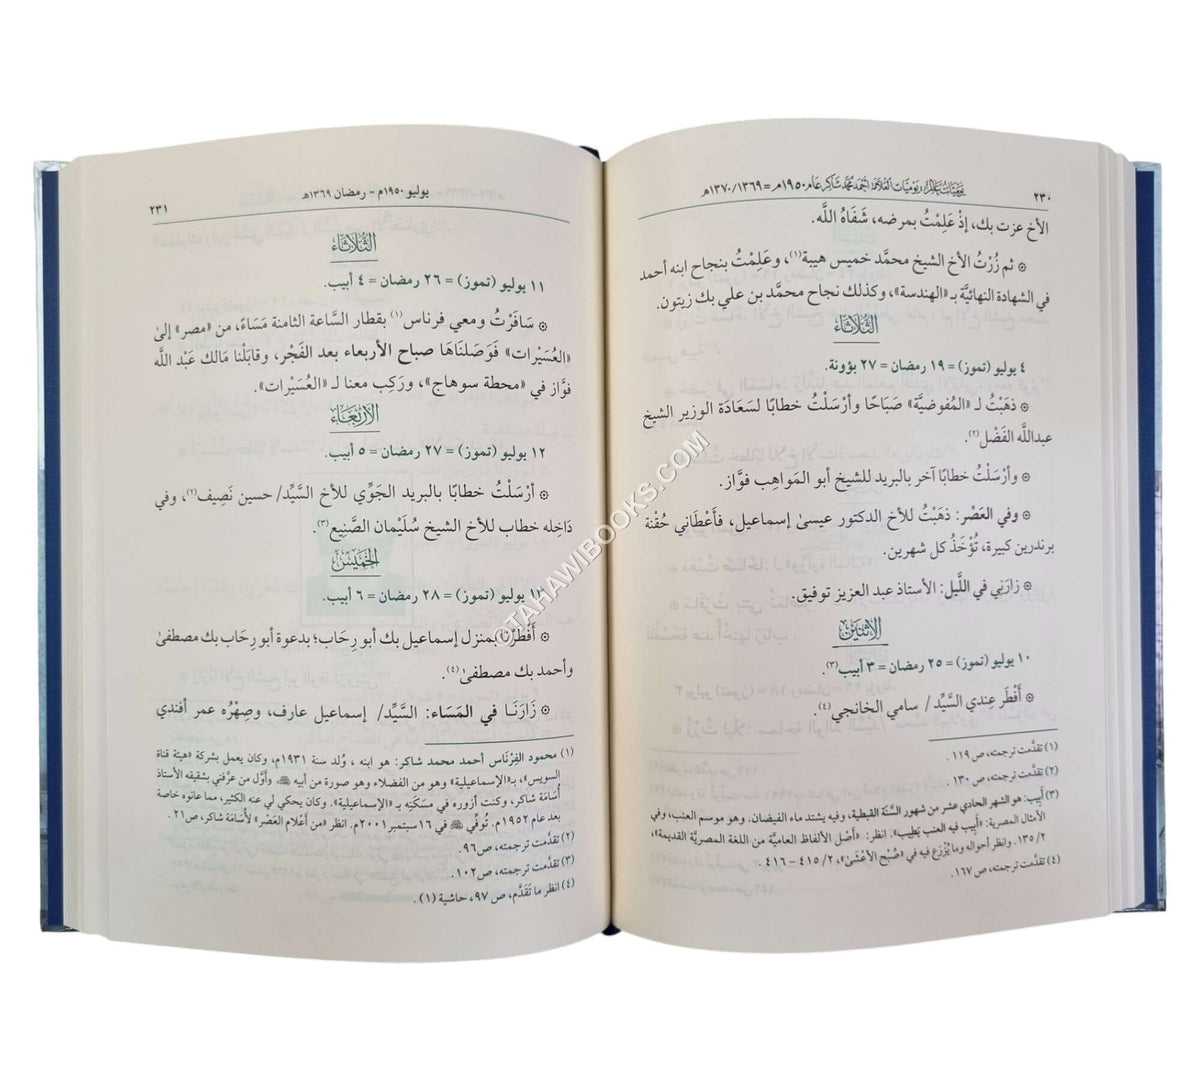 ٢٣٠
يوميات العلامة أحمد محمد شاكر عام ١٩٥٠م = ١٣٦٩/ ١٣٧٠هـ
الأخ عزت بك، إذْ عَلِمْتُ بمرضه، شَفَاهُ اللَّه.
۞ ثم زُرْتُ الأخ الشيخ محمَّد خميس هيبة(١)، وعَلِمْتُ بنجاح ابنه أحمد
في الشهادة النهائيَّة بـ «الهندسة»، وكذلك نجاح محمَّد بن علي بك زيتون.
الثلاثاء
٤ يوليو (تموز) = ١٩ رمضان = ٢٧ بؤونة.
۞ ذهَبْتُ لـ «المُفوضيَّة» صَبَاحًا وأرْسَلْتُ خطابًا لسَعَادَة الوزير الشيخ
عبداللَّه الفَضْل(٢).
۞ وأرْسَلْتُ خطابًا آخر بالبريد للشيخ أبو المَواهِب فوَّاز.
۞ وفي العَصْر: ذهَبْتُ للأخ الدكتور عيسىٰ إسماعيل، فأَعْطَاني حُقْنة
برندرين كبيرة، تُؤْخَذُ كل شهرين.
۞ زارَنِي في اللَّيل: الأستاذ عبد العزيز توفيق.
الإثنين
١٠ يوليو (تموز) = ٢٥ رمضان = ٣ أبيب(٣).
۞ أَفْطَر عِندي السَّيِّد/ سامي الخانجي(٤).
(١) تقدَّمت ترجمته، ص ١١٩.
(٢) تقدَّمت ترجمته، ص ١٣٠.
(٣) أبِيب: هو الشهر الحادي عشر من شهور السَّنَة القبطية، وفيه يشتد ماء الفيضان. وهو موسم العنب، وفي
الأمثال المصرية: «أبيب فيه العنب يَطِيب». انظر: «أصْل الألفاظ العاميَّة من اللغة المصريَّة القديمة»،
٢/ ١٣٥. وانظر أحواله وما يُزْرَع فيه في «صُبْح الأعْشىٰ»، ٢/ ٤١٥ - ٤١٦.
(٤) تقدَّمت ترجمته، ص ١٦٧.
يوليو ١٩٥٠م - رمضان ١٣٦٩هـ
٢٣١
الثلاثاء
١١ يوليو (تموز) = ٢٦ رمضان = ٤ أبيب.
۞ سَافَرْتُ ومعي فرناس(١) بقطار السَّاعة الثامنة مَسَاءً، من «مصر» إلىٰ
«العُسَيْرات» فَوَصَلنَاهَا صباح الأربعاء بعد الفَجْر، وقابَلْنا مَالك عَبْد اللَّه
فوَّاز في «محطة سوهاج»، ورَكِب معنا لـ «العُسَيْرات».
الأربعاء
١٢ يوليو (تموز) = ٢٧ رمضان = ٥ أبيب.
۞ أرْسَلْتُ خطابًا بالبريد الجَوِّي للأخ السَّيِّد/ حسين نَصِيف(٢)، وفي
دَاخِله خطاب للأخ الشيخ سُلَيْمان الصَّنِيع(٣).
الخميس
١٣ يوليو (تموز) = ٢٨ رمضان = ٦ أبيب.
۞ أَفْطَرْنَا بمنزل إسماعيل بك أبو رحَاب؛ بدعوة أبو رحَاب بك مصطفىٰ
وأحمد بك مصطفىٰ(٤).
۞ زَارَنَا في المَسَاء: السَّيِّد/ إسماعيل عارف، وصِهْرُه عمر أفندي
(١) محمود الفِرْنَاس أحمد محمد شاكر: هو ابنه، وُلد سنة ١٩٣١م، وكان يعمل بشركة «هيئة قناة
السويس»، بـ«الإسماعيلية» وهو من الفضلاء وهو صورة من أبيه وأوَّل من عرَّفني بشقيقه الأستاذ
أُسَامَة شاكر، وكنت أزوره في مسَكَنِه بـ «الإسماعيلية». وكان يحكي لي عنه الكثير، مما عانوه خاصة
بعد عام ١٩٥٢م. تُوفِّي في ١٦ سبتمبر ٢٠٠١م. انظر «من أعْلام العَصْر» لأسَامَة شاكر، ص٢١.
(٢) تقدَّمت ترجمته، ص٩٦.
(٣) تقدَّمت ترجمته، ص١٠٢.
(٤) انظر ما تَقَدَّم، ص ٩٧، حاشية (١).
©TAHAWIBOOKS.COM